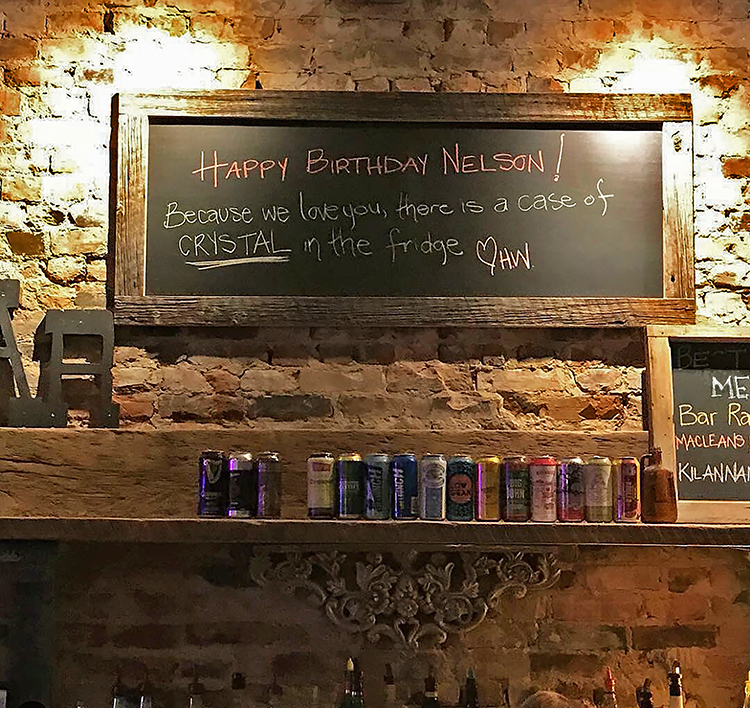 HAPPY BIRTHDAY NELSON!
Because we love you, there is a case of
CRYSTAL in the fridge ♡HW.
AR
BEST
ME
Bar Ra
MACLEANS
KILANNAN
LOW